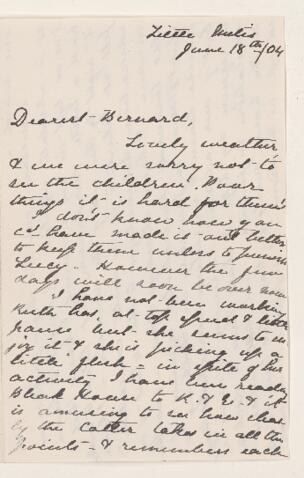 Little Metis
June 18th/04
Dearest Bernard,
Lovely weather
& we were sorry not to
see the children. Poor
things it is hard for them
I don't know how you
cd. have made it any better
to keep them unless to punish
Lucy. However the few
days will soon be over now
I have not been working
Ruth has, at top speed &
house but she seems to en-
joy it & she is picking up a
little flesh - in spite of her
activity I have been reading
Bleak House to K. & & it
is amusing to see how
the latter takes in all the
points - & remembers each